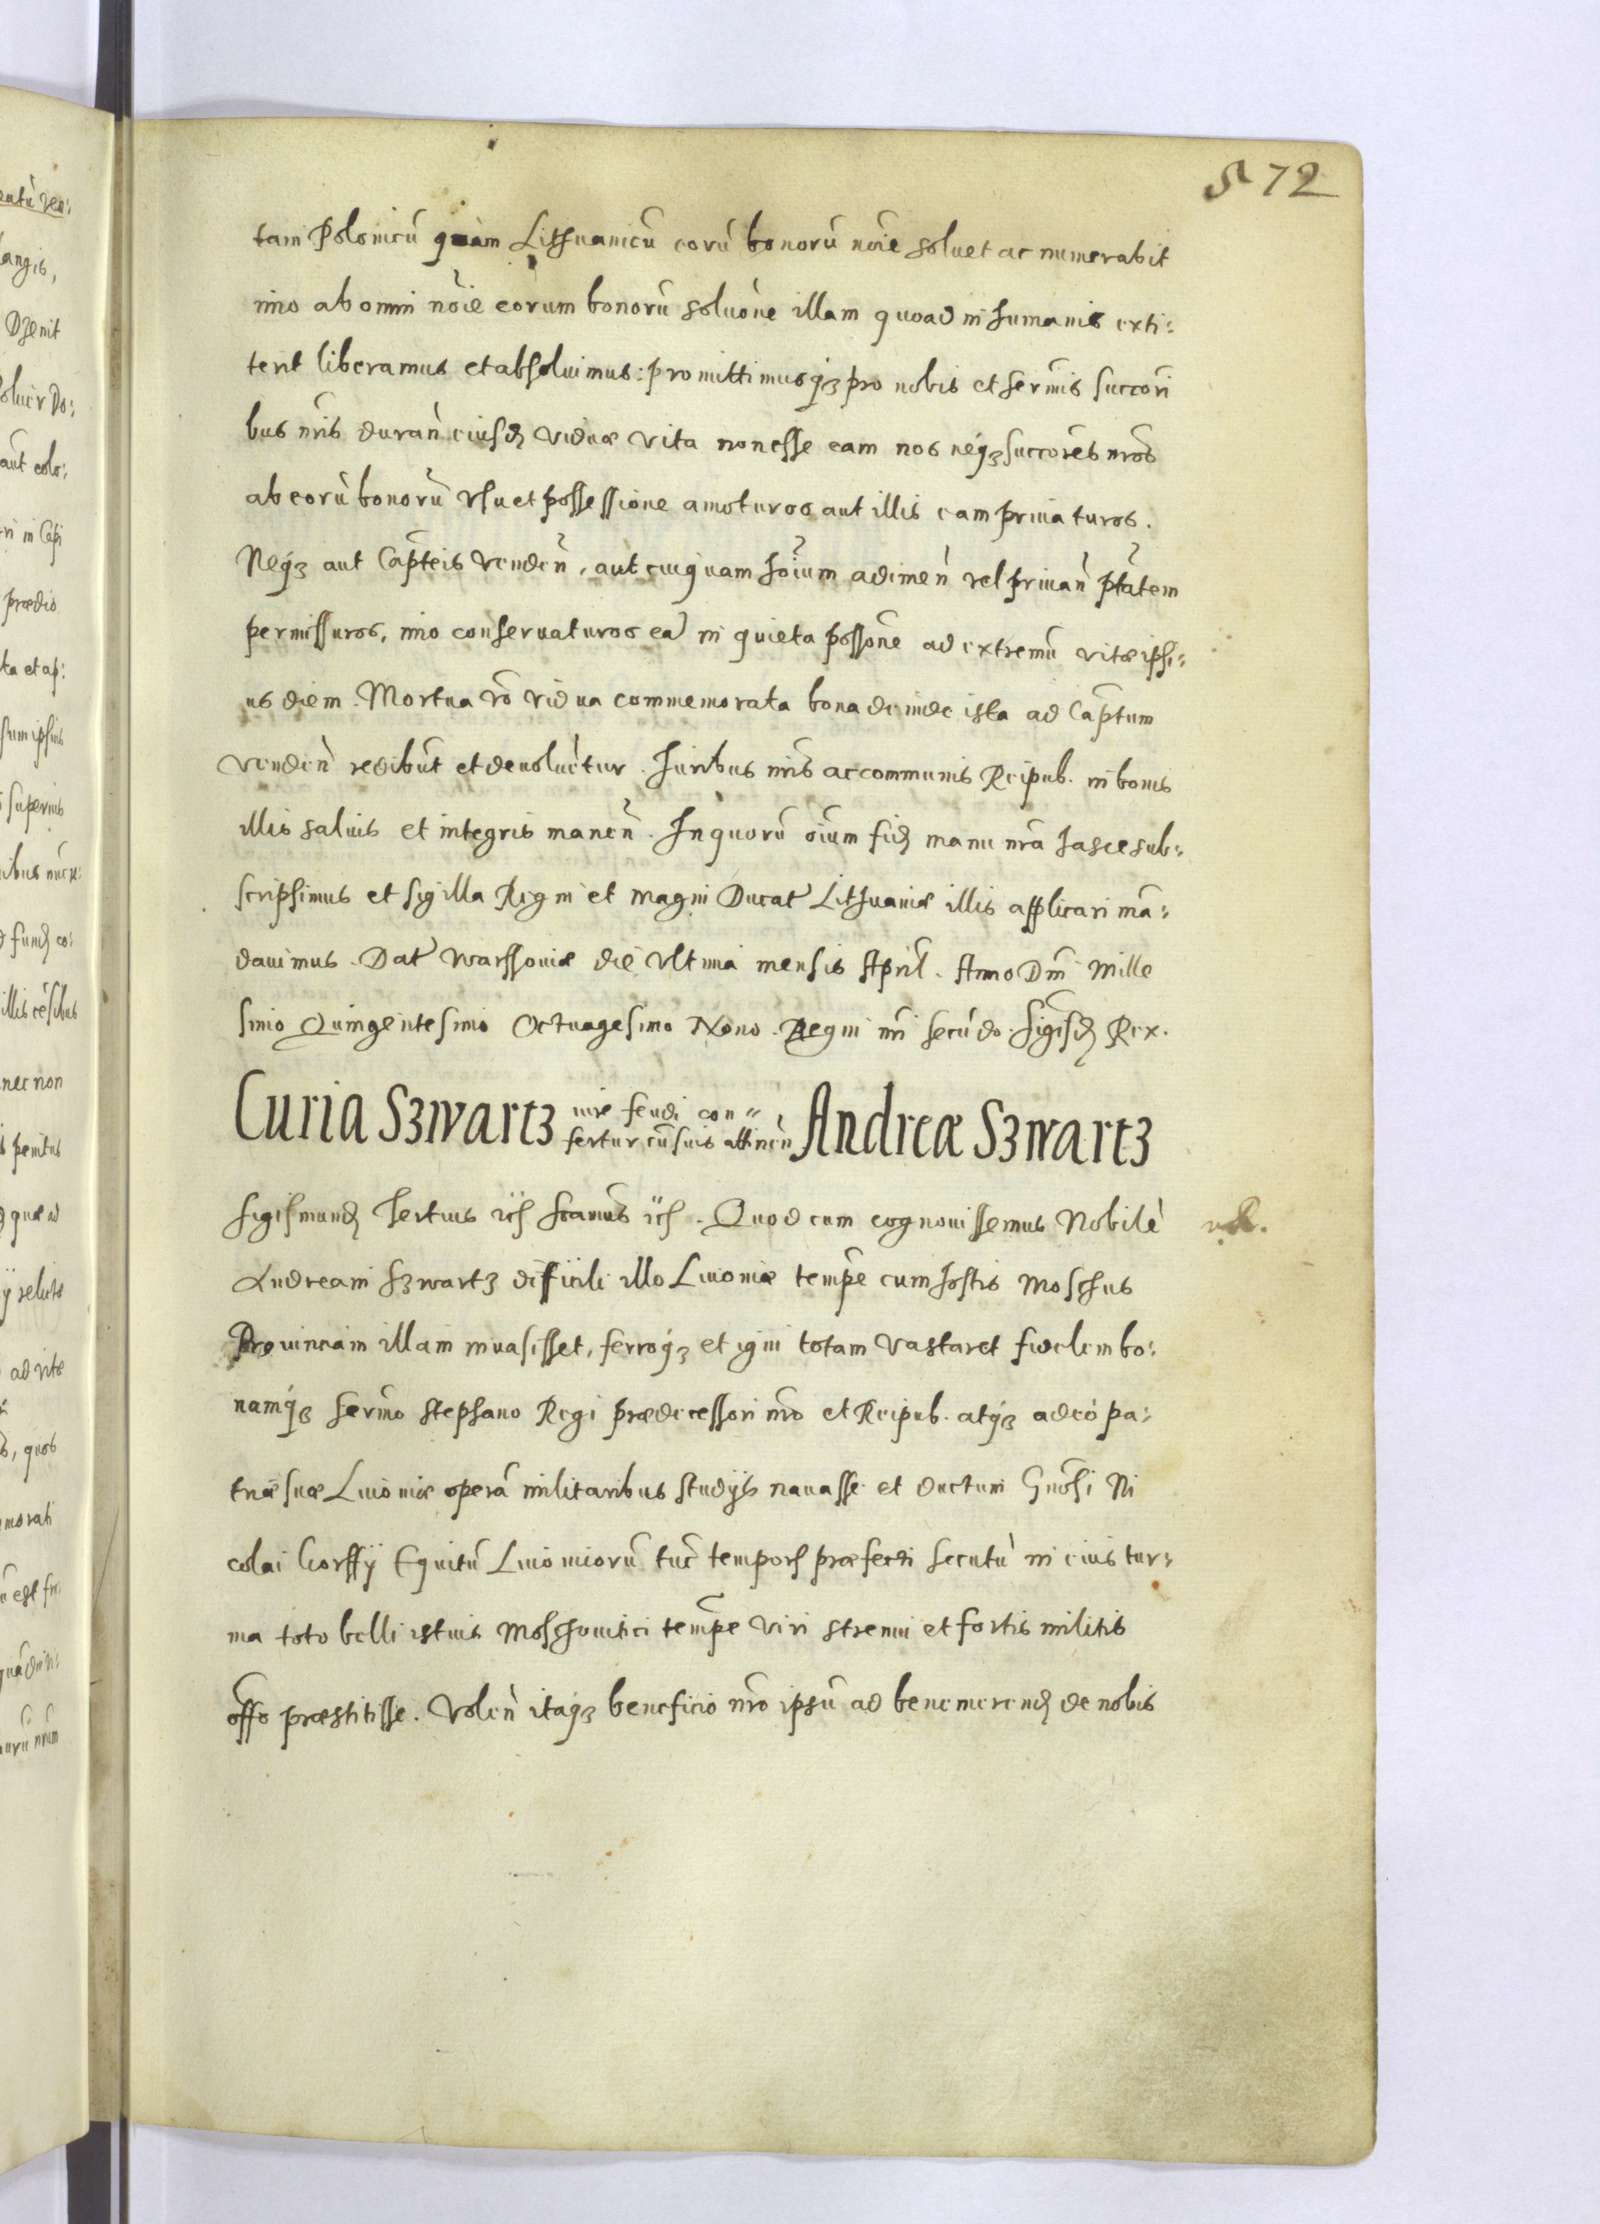 572
tam Polonicū quàm Lithuanicū eorū bonorū nōie soluet ac numerabit
imo ab omni nōie eorum bonorū soluōne illam quoad in humanis exti:
terit liberamus et absoluimus: promittimusq₃ pro nobis et sermis succori
bus nris duran̄ eiusd viduæ vita non esse eam nos neq₃ succores nros
ab eorū bonorū vsu et possessione amoturos aut illis eam priuaturos.
Neq₃ aut Capteis Venden̄, aut cuiquam hoium adimen̄ vel priuan̄ ptatem
permissuros, imo conseruaturos eā in quieta possone ad extremū vitæ ipsi:
us diem. Mortua vō vidua commemorata bona deinde ista ad Captum
Venden̄ redibūt et deuoluētur. Juribus nris ac communis Reipub. in bonis
illis saluis et integris manen̄. In quorū oium fid manu nra hasce sub:
scripsimus et sigilla Regni et Magni Ducat Lithuaniæ illis applicari mā:
dauimus. Dat Warssouiæ die Vltima mensis April. Anno Dni Mille
simo Quingentesimo Octuagesimo Nono. Regni nri secūdo. Sigisd Rex.
Curia Szwartz iure feudi con=
fertur cū suis attinēn Andreæ Szwartz
Sigismund Tertius etc̄ etc̄. Quod cum cognouissemus Nobilē
Andream Szwartz difficili illo Liuoniæ tempe cum hostis Moschus
Prouinciam illam inuasisset, ferroq₃ et igni totam vastaret fidelem bo:
namq₃ sermo Stephano Regi prædecessori nro et Reipub. atq₃ adeò pa:
triæ suæ Liuoniæ operā militaribus studijs nauasse et ductum Gnosi Ni
colai Korffij Equitū Liuoniorū tūc temporis præfecti secutū in eius tur:
ma toto belli istius Moschouitici tempe viri strenui et fortis militis
offo præstitisse. Volen̄ itaq₃ beneficio nro ipsū ad benemerend de nobis